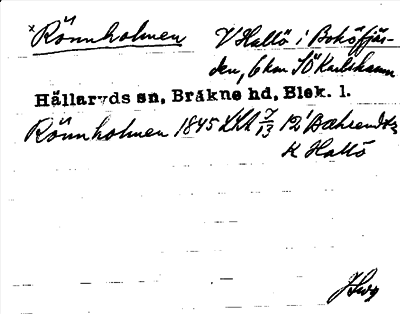 x Rönnholmen V Hallö i Boköfjär-
den, 6 km SÖ Karlshamn
Hällaryds sn, Bräkne hd, Blek. l.
Rönnholmen 1845 LKA 7/13 12 Bahrendtz
K Hallö